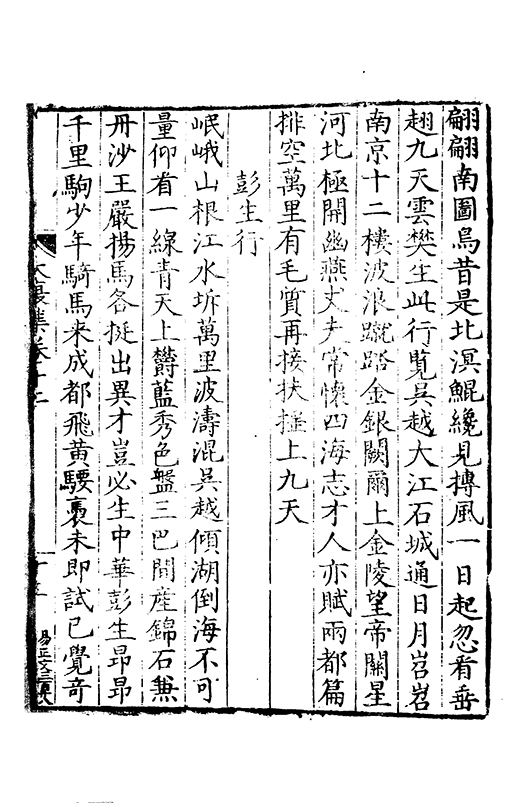 翩翩南圖鳥昔是北溟鯤纔見摶風一日起忽看垂
趐九天雲樊生此行覽吳越大江石城通日月岧岧
南京十二樓波浪蹴踏金銀闕爾上金陵望帝關星
河北極開幽燕丈夫常懷四海志才人亦賦兩都篇
排空萬里有毛質再接扶搖上九天
彭生行
岷峨山根江水坼萬里波濤混吳越傾湖倒海不可
量仰看一線青天上欝藍秀色盤三巴間産錦石兼
丹沙王嚴揚馬各挺出異才豈必生中華彭生昂昂
千里駒少年騎馬来成都飛黃騕褭未即試已覺奇
大復集卷十二